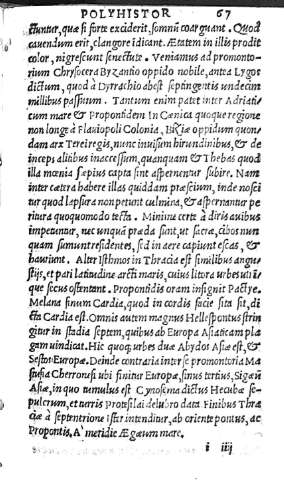 POLYHISTOR 67
ctuntur, quæ si forte exciderit, somnũ coarguant. Quod
cauendum erit, clangore idicant. Ætatem in illis prodit
color, nigrescunt senectute. Veniamus ad promonto-
rium Chrysocera Byzantio oppido nobile, antea Lygos
dictum, quod à Dyrrachio abest septingentis undecim
millibus passuum. Tantum enim patet inter Adriati
cum mare & Propontidem In Cænica quoque regione
non longe à Flauiopoli Colonia, Bizie oppidum quon-
dam arx Tereiregis, nunc inuisum hirundinibus, & de
inceps alitibus inaccessum, quanquam & Thebas quod
illa mœnia sæpius capta sint aspernentur subire. Nam
inter cætera habere illas quiddam præscium, inde nosci
tur quod lapsura non petunt culmina, & aspernantur pe
ritura quoquomodo tecta. Minime certe à diris auibus
impetuntur, nec unquã præda sunt, ut sacra, cibos nun
quam sumunt residentes, sed in aere capiunt escas, &
hauriunt. Alter Isthmos in Thracia est similibus angu
stijs, et pari latitudine arcti maris, cuius litora urbes utrin
que secus ostentant. Propontidos oram insignit Pactye.
Melana sinum Cardia, quod in cordis facie sita sit, di
cta Cardia est. Omnis autem magnus Hellespontus strin
gitur in stadia septem, quibus ab Europa Asiaticam pla
gam uindicat. Hic quoq; urbes duæ Abydos Asiæ est, &
Sestos Europæ. Deinde contraria inter se promontoria Ma
stusia Cherronesi ubi finitur Europæ, sinus tertius, Sigæũ
Asiæ, in quo tumulus est Cynossema dictus Hecubæ se-
pulcrum, et turris Protesilai delubro data Finibus Thra
ciæ à septentrione Ister intenditur, ab oriente pontus, ac
Propontis, A meridie Ægæum mare.
i iij